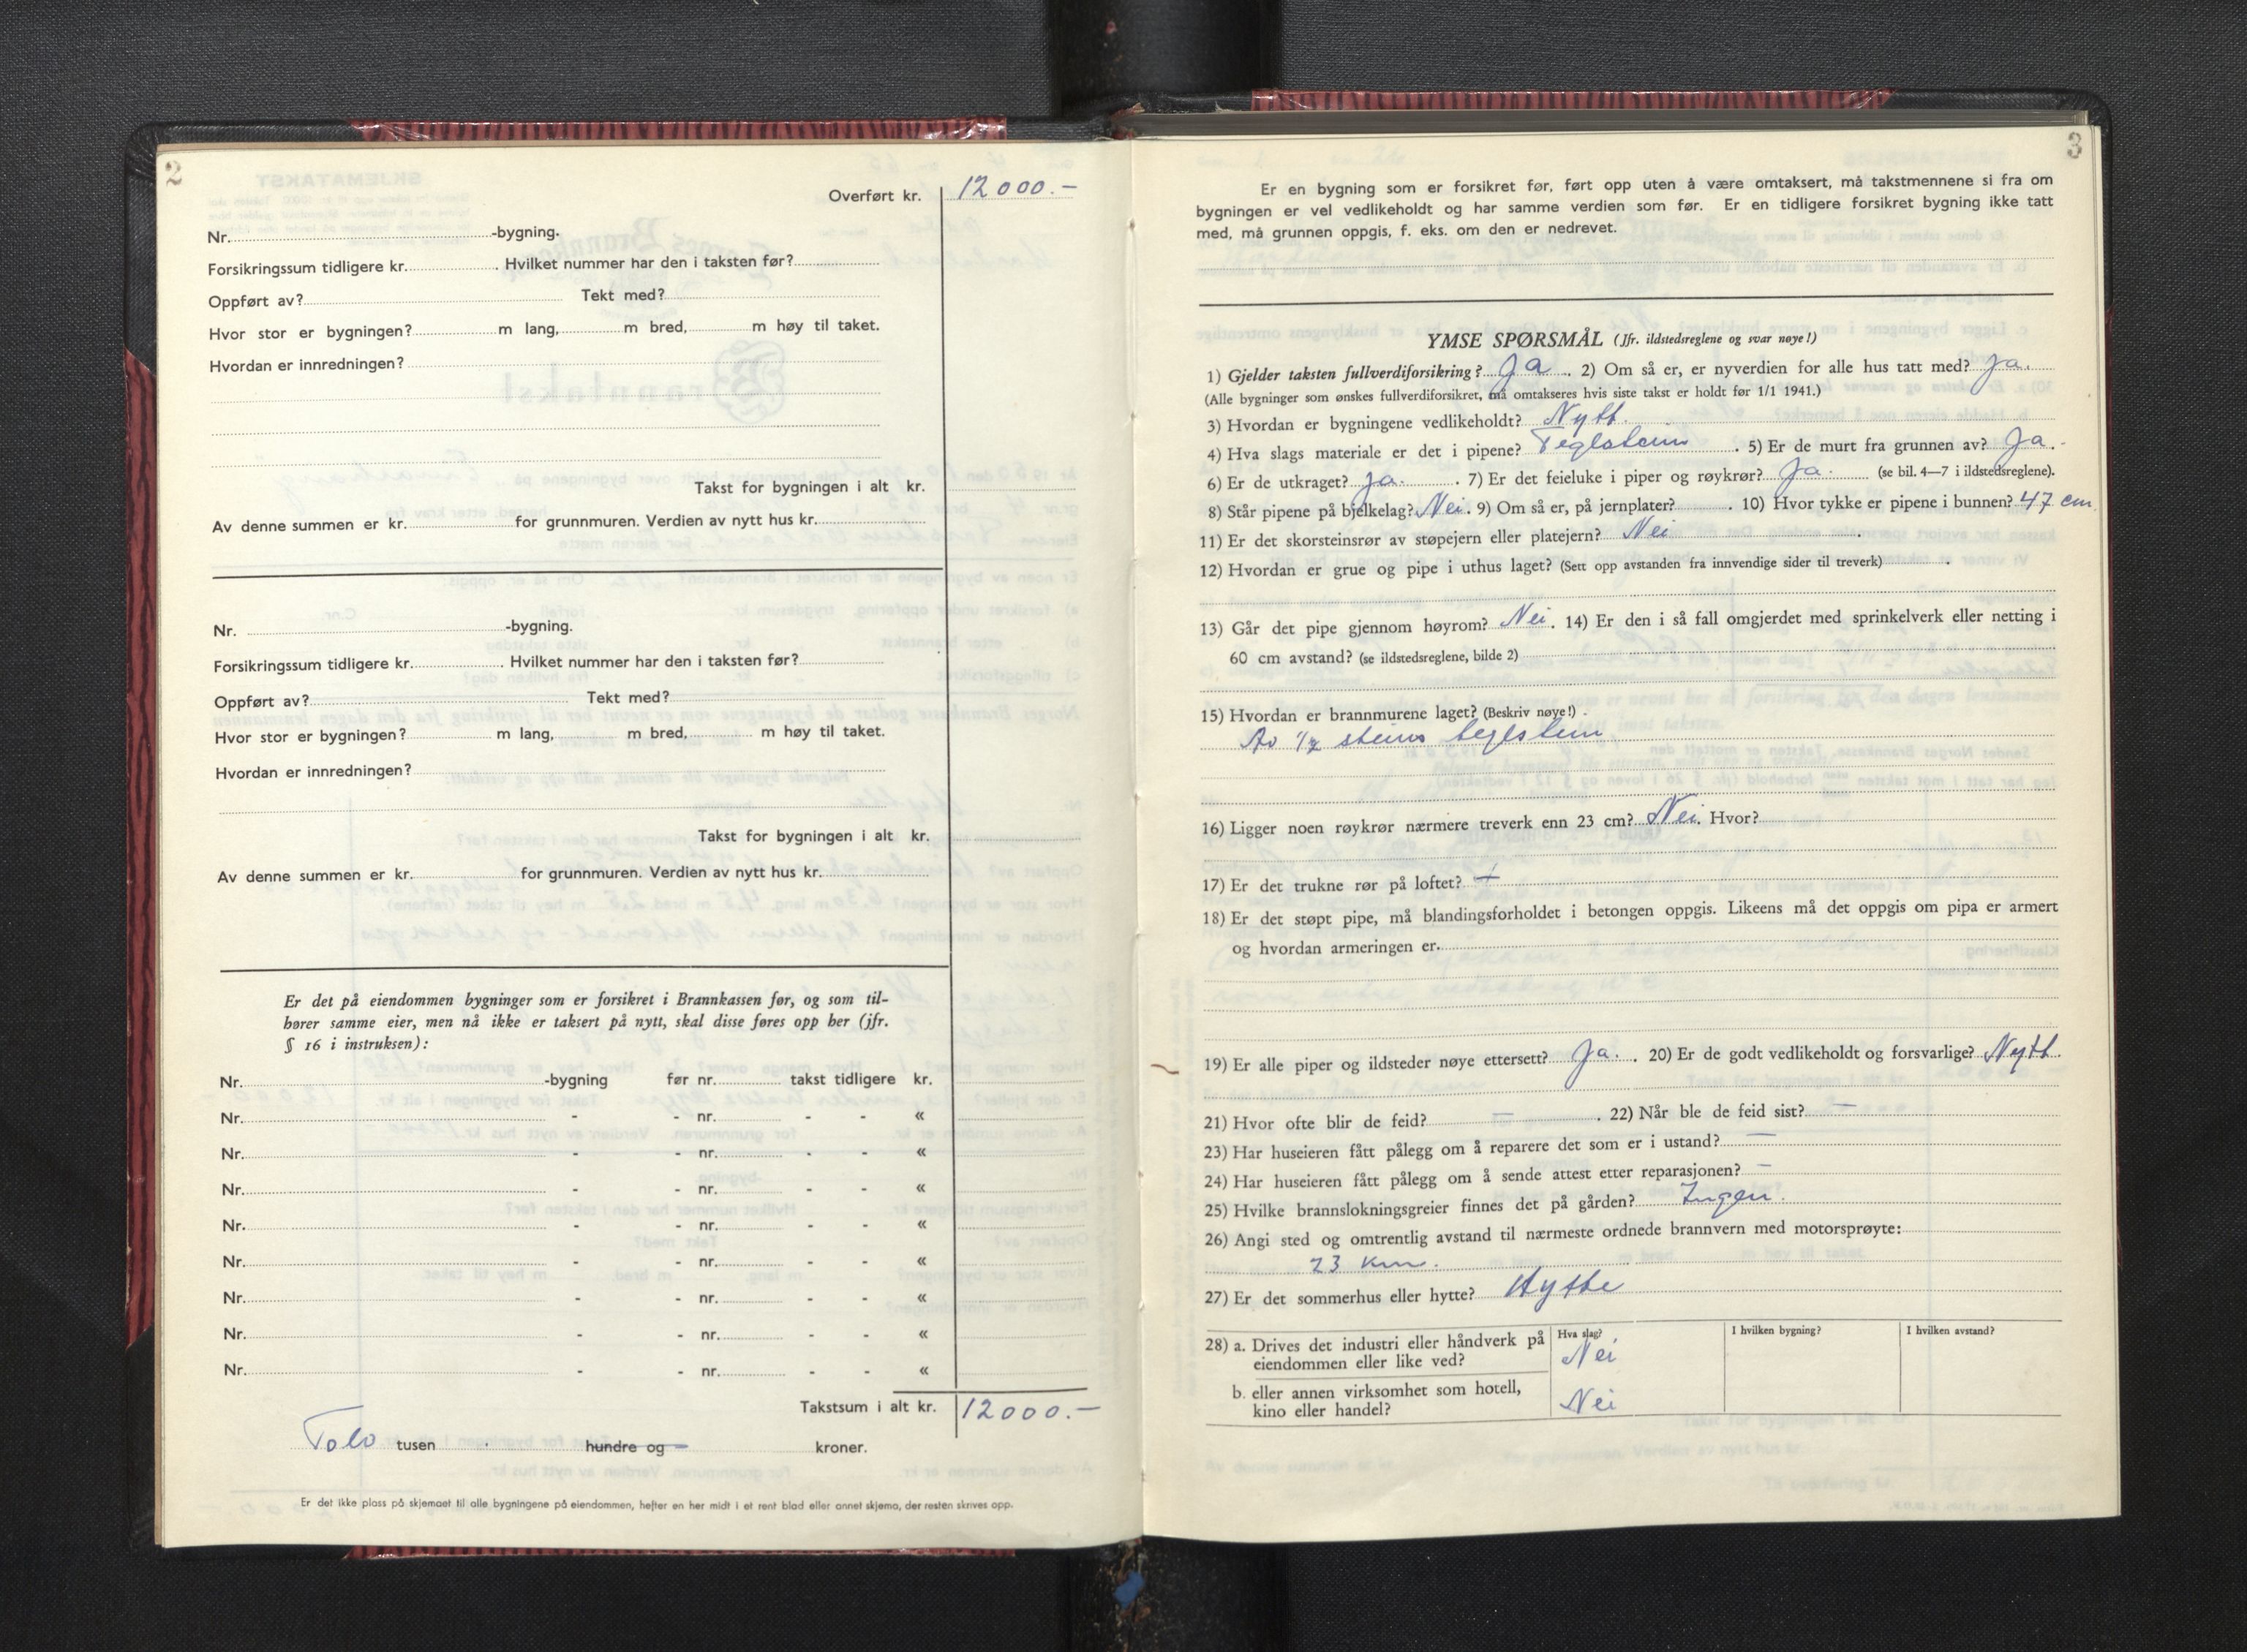 2
Overført kr. 12000.-
Nr. -bygning.
Forsikringssum tidligere kr. . Hvilket nummer har den i taksten før?
Oppført av? Tekt med?
Hvor stor er bygningen? m lang, m bred, m høy til taket.
Hvordan er innredningen?
Takst for bygningen i alt kr.
Av denne summen er kr. for grunnmuren. Verdien av nytt hus kr.
Nr. -bygning.
Forsikringssum tidligere kr. . Hvilket nummer har den i taksten før?
Oppført av? Tekt med?
Hvor stor er bygningen? m lang, m bred, m høy til taket.
Hvordan er innredningen?
Takst for bygningen i alt kr.
Av denne summen er kr. for grunnmuren. Verdien av nytt hus kr.
Er det på eiendommen bygninger som er forsikret i Brannkassen før, og som til-
hører samme eier, men nå ikke er taksert på nytt, skal disse føres opp her (jfr.
§ 16 i instruksen):
Nr. -bygning før nr. takst tidligere kr.
Nr. - - nr. - - «
Nr. - - nr. - - «
Nr. - - nr. - - «
Nr. - - nr. - - «
Nr. - - nr. - - «
Nr. - - nr. - - «
Nr. - - nr. - - «
Nr. - - nr. - - «
Takstsum i alt kr. 12000.-
Tolv tusen hundre og - kroner.
Er det ikke plass på skjemaet til alle bygningene på eiendommen, hefter en her midt i et rent blad eller annet skjema, der resten skrives opp.
3
Er en bygning som er forsikret før, ført opp uten å være omtaksert, må takstmennene si fra om
bygningen er vel vedlikeholdt og har samme verdien som før. Er en tidligere forsikret bygning ikke tatt
med, må grunnen oppgis, f. eks. om den er nedrevet.
YMSE SPØRSMÅL (Jfr. ildstedsreglene og svar nøye!)
1) Gjelder taksten fullverdiforsikring? Ja . 2) Om så er, er nyverdien for alle hus tatt med? Ja.
(Alle bygninger som ønskes fullverdiforsikret, må omtakseres hvis siste takst er holdt før 1/1 1941.)
3) Hvordan er bygningene vedlikeholdt? Nytt.
4) Hva slags materiale er det i pipene? Teglstein . 5) Er de murt fra grunnen av? Ja.
6) Er de utkraget? Ja. . 7) Er det feieluke i piper og røykrør? Ja. (se bil. 4—7 i ildstedsreglene).
8) Står pipene på bjelkelag? Nei. 9) Om så er, på jernplater? . 10) Hvor tykke er pipene i bunnen? 47 cm.
11) Er det skorsteinsrør av støpejern eller platejern? Nei .
12) Hvordan er grue og pipe i uthus laget? (Sett opp avstanden fra innvendige sider til treverk) .
13) Går det pipe gjennom høyrom? Nei. 14) Er den i så fall omgjerdet med sprinkelverk eller netting i
60 cm avstand? (se ildstedsreglene, bilde 2)
15) Hvordan er brannmurene laget? (Beskriv nøye!)
Av 1/2 steins teglstein
16) Ligger noen røykrør nærmere treverk enn 23 cm? Nei. Hvor?
17) Er det trukne rør på loftet?
18) Er det støpt pipe, må blandingsforholdet i betongen oppgis. Likeens må det oppgis om pipa er armert
og hvordan armeringen er.
19) Er alle piper og ildsteder nøye ettersett? Ja. . 20) Er de godt vedlikeholdt og forsvarlige? Nytt.
21) Hvor ofte blir de feid? — . 22) Når ble de feid sist? —
23) Har huseieren fått pålegg om å reparere det som er i ustand? —
24) Har huseieren fått pålegg om å sende attest etter reparasjonen? —
25) Hvilke brannslokningsgreier finnes det på gården? Ingen.
26) Angi sted og omtrentlig avstand til nærmeste ordnede brannvern med motorsprøyte:
23 km.
27) Er det sommerhus eller hytte? Hytte
28) a. Drives det industri eller håndverk på Hva slag? I hvilken bygning? I hvilken avstand?
eiendommen eller like ved? Nei
b. eller annen virksomhet som hotell,
kino eller handel? Nei